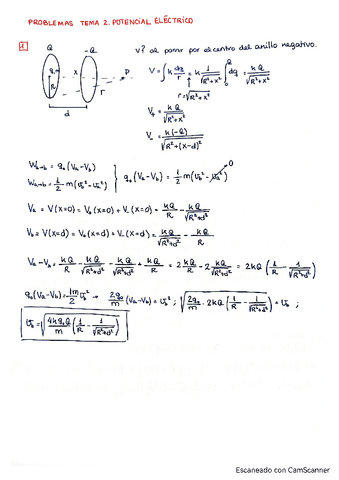 PROBLEMAS TEMA 2. POTENCIAL ELÉCTRICO
1 Q -Q v? al pasar por el centro del anillo negativo.
q₀ R x r P d
V = ∫ k dq/r = k 1/√(R²+x²) ∫₀^Q dq = kQ/√(R²+x²)
r = √(R²+x²)
V₊ = kQ/√(R²+x²)
V₋ = k(-Q)/√(R²+(x-d)²)
Wa→b = q₀(Va-Vb)
Wa→b = 1/2 m(vb²-va²) } q₀(Va-Vb) = 1/2 m(vb²-va²) 0
Va = V(x=0) = V₊(x=0) + V₋(x=0) = kQ/R - kQ/√(R²+d²)
Vb = V(x=d) = V₊(x=d) + V₋(x=d) = kQ/√(R²+d²) - kQ/R
Va-Vb = kQ/R - kQ/√(R²+d²) - kQ/√(R²+d²) + kQ/R = 2kQ/R - 2kQ/√(R²+d²) = 2kQ(1/R - 1/√(R²+d²))
q₀(Va-Vb) = 1/2 m vb² → 2q₀/m (Va-Vb) = vb² ; √(2q₀/m · 2kQ(1/R - 1/√(R²+d²))) = vb ;
vb = √(4kq₀Q/m (1/R - 1/√(R²+d²)))
Escaneado con CamScanner